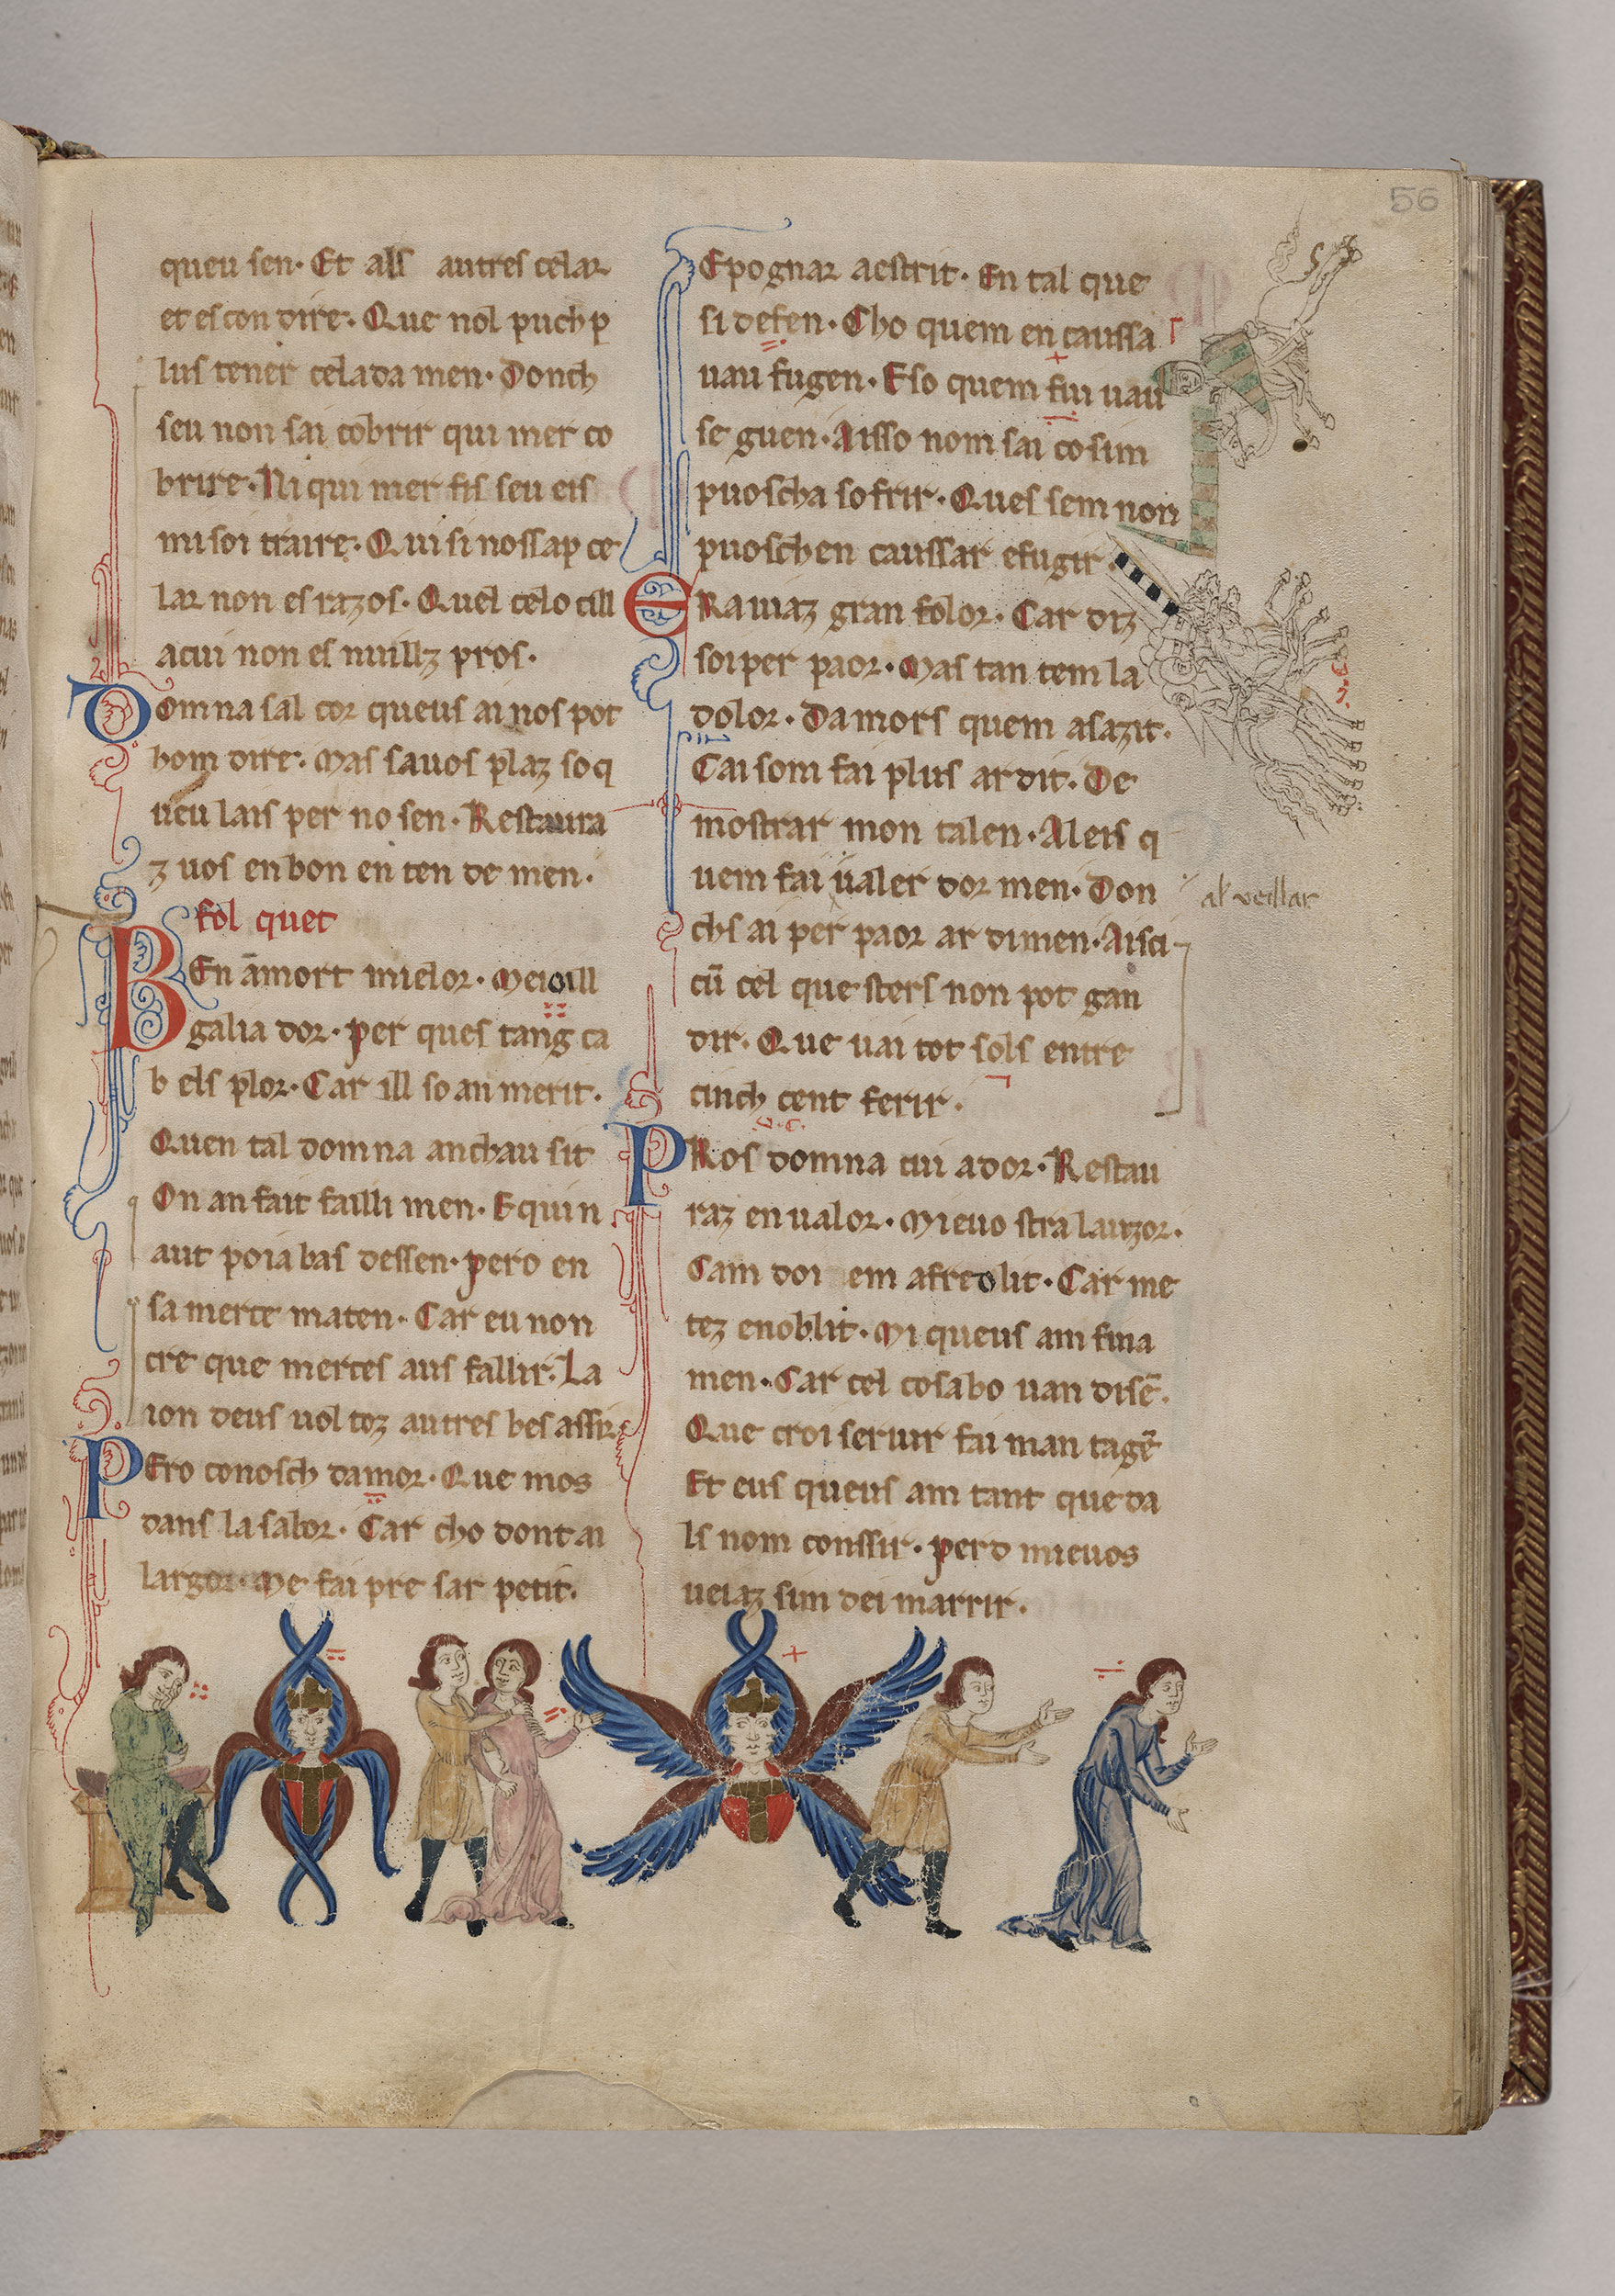 56
queu sen. Et als autres celar
et escondire. Que nol puch p
lus tener celada men. Donch
seu non sai cobrir qui mer co
brire. Ni qui mer fis seu eis
mi soi traire. Qui si nos sap ce
lar non es razos. Quel celo cill
acui non es nuillz pros.
Domna sal cor queus ai nos pot
hom dire. Mas sauos plaz so q
ueu lais per no sen. Restaura
z uos en bon en ten de men.
fol quet
BEn āmort mielor. Mei oill
galiador. per ques tang ca
b els plor. Car ill so an merit.
Quen tal domna anchau sit
On an fait failli men. E qui n
aut poia bas dessen. pero en
sa merce maten. Car eu non
cre que merces aus fallir. La
ion deus uol toz autres bes assir
PEro conosch damor. Que mos
dans la sabor. Car cho dont ai
largor. Me fai pre sar petit.
E pognar aestrit. En tal que
si defen. Cho quem en caussa
uau fugen. E so quem fui uau
se guen. Aisso nom sai cosim
puoscha sofrir. Ques sem non
puosch en caussar e fugir.
ERa uiaz gran folor. Car diz
soi per paor. Mas tan tem la
dolor. Damors quem asazit.
Cai som fai plus ardit. De
mostrar mon talen. A leis q
uem fai ualer dor men. Don
al veillar
chs ai per paor ar dimen. Aisci
cū cel que sters non pot gan
dir. Que uai tot sols entre
cinch cent ferir.
PRos domna cui ador. Restau
raz en ualor. Mi e uostra lauzor.
Cam doi em afreolit. Car me
tez en oblit. Mi queus am fina
men. Car cel co sabo uan disē.
Que croi seruir fai man tagē
Et eus queus am tant que da
ls nom conssir. pero mi e uos
ueiaz sim dei marrir.